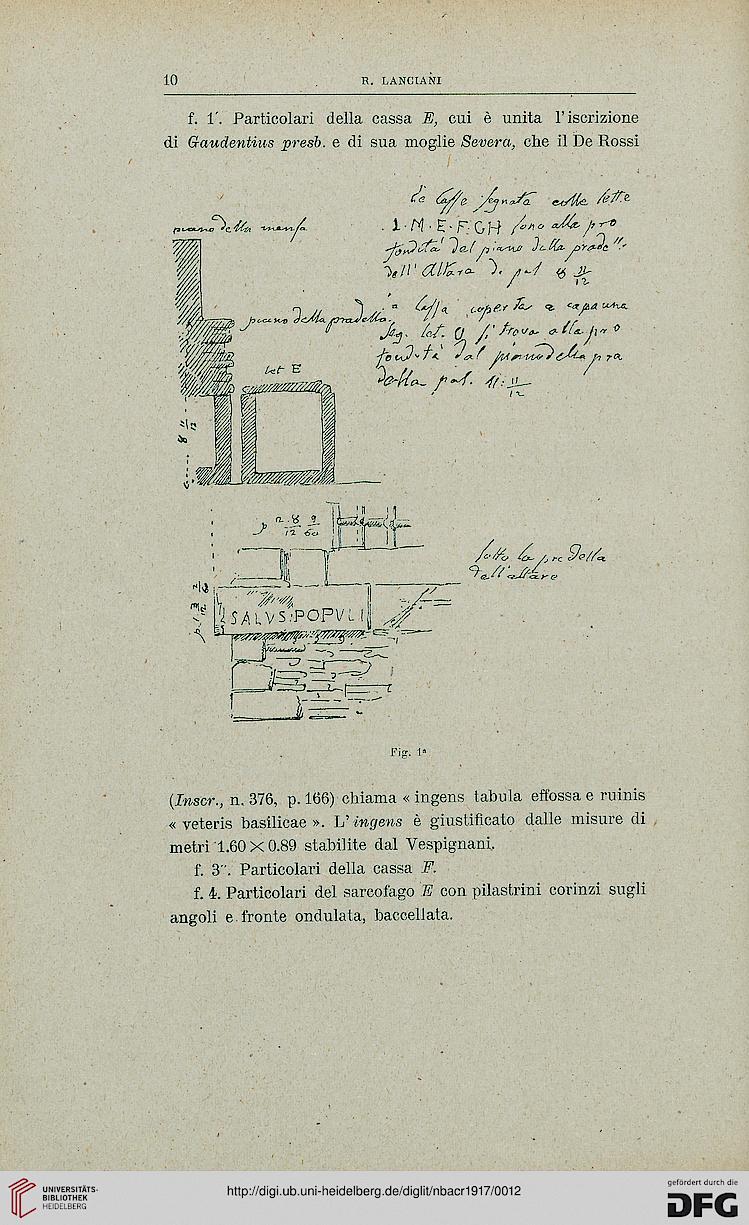 10
R. LANCIANI
f. 1'. Particolari della cassa E, cui è unita l'iscrizione
di Gaudentius presb. e di sua moglie Severa, che il De Rossi
Le Casse segnate colle lette
piano della mensa
I. M. E. F. G H sono alla pro
fondità del piano della prade
dell' Altare di pal 8 11/12
piano della pradella.
a Cassa coperta a capanna
seg. let. O si trova alla pro
fondità dal piano della pra
della pal. 11: 11/12
let E
8 11/12
p 2. 8/12 9/60
sotto la predella
dell' altare
p. 1 3/12
SALVS·POPVLI
Fig. 1ª
(Inscr., n. 376, p. 166) chiama « ingens tabula effossa e ruinis
« veteris basilicae ». L' ingens è giustificato dalle misure di
metri 1.60 × 0.89 stabilite dal Vespignani.
f. 3''. Particolari della cassa F.
f. 4. Particolari del sarcofago E con pilastrini corinzi sugli
angoli e fronte ondulata, baccellata.
UNIVERSITÄTS-
BIBLIOTHEK
HEIDELBERG
http://digi.ub.uni-heidelberg.de/diglit/nbacr1917/0012
gefördert durch die
DFG